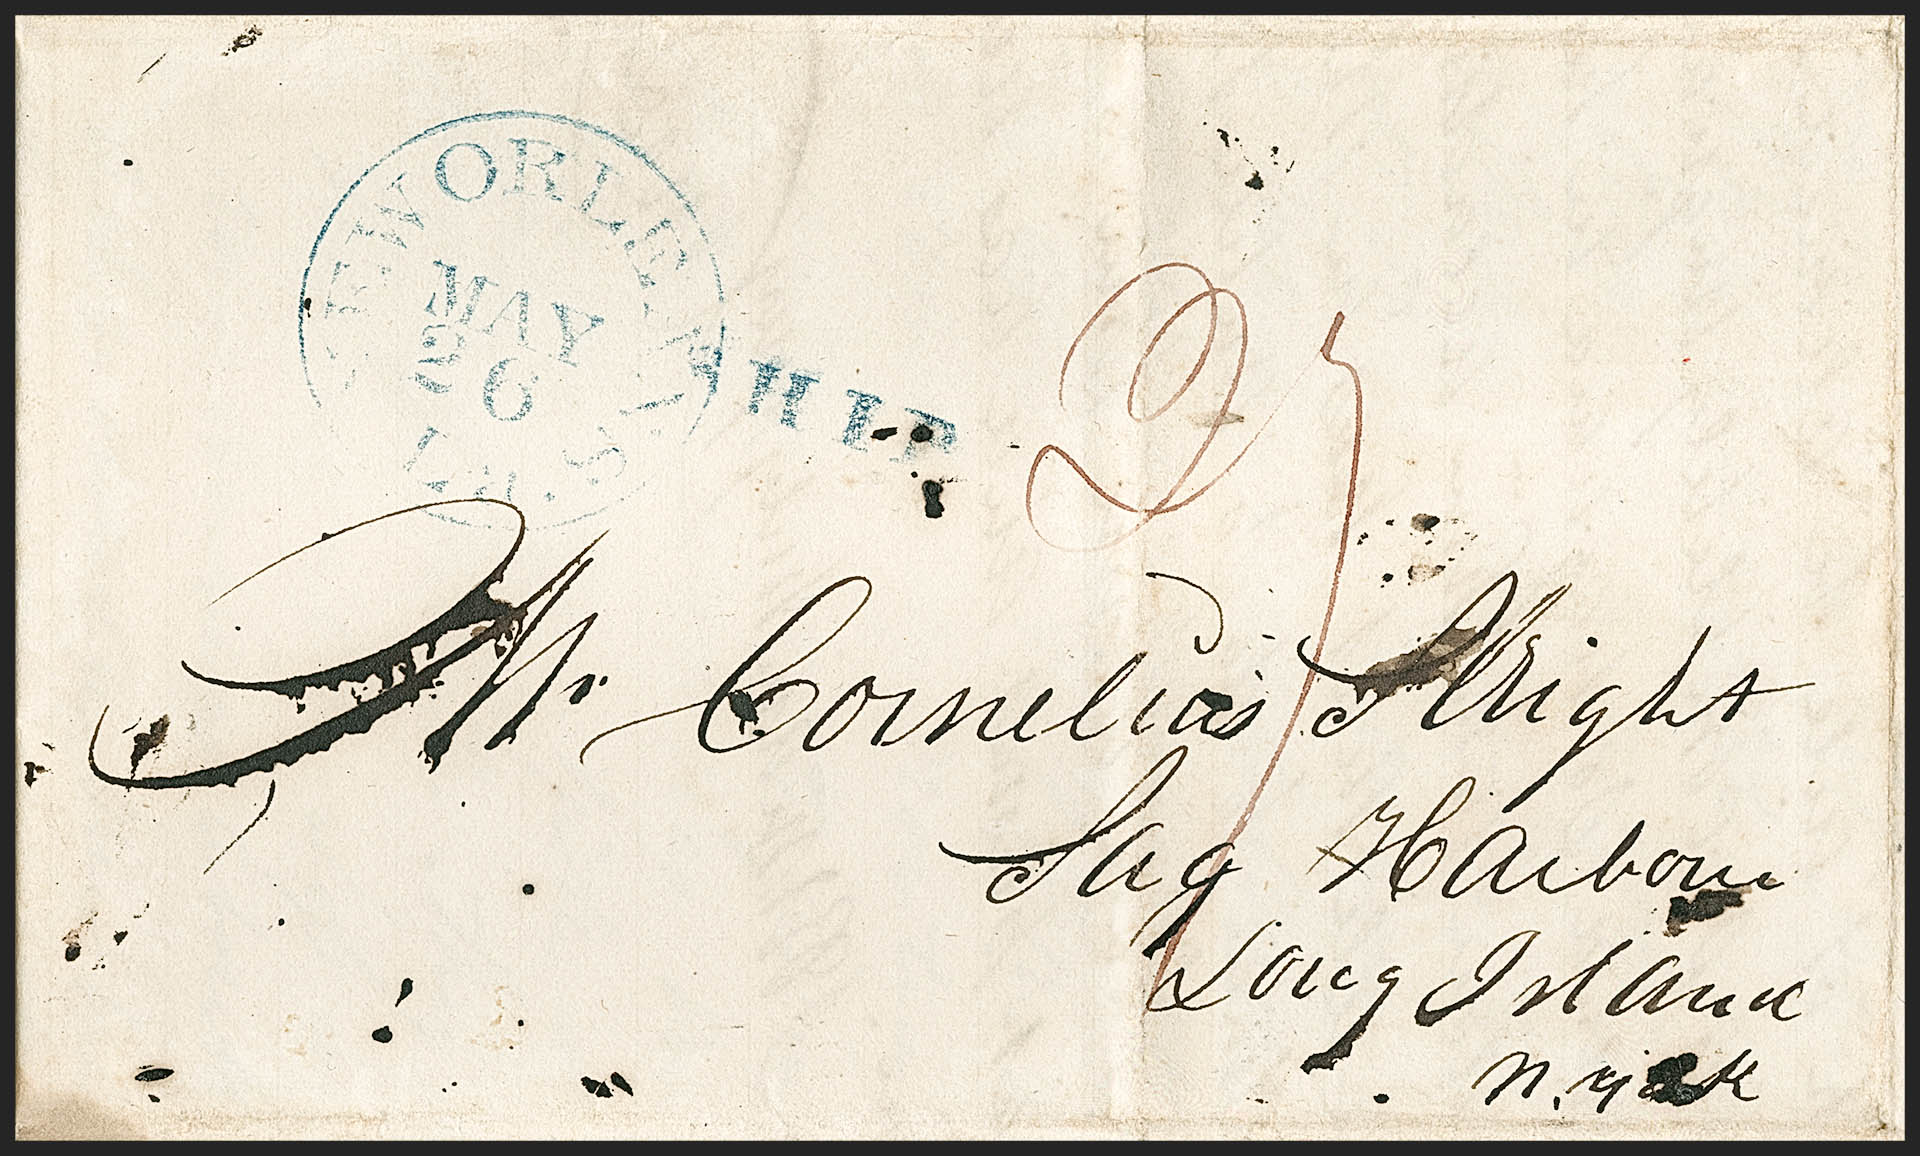 NEW ORLEANS La.
MAY
26
SHIP
27
Mr Cornelius Sleight
Sag Harbour
Long Island
N. York